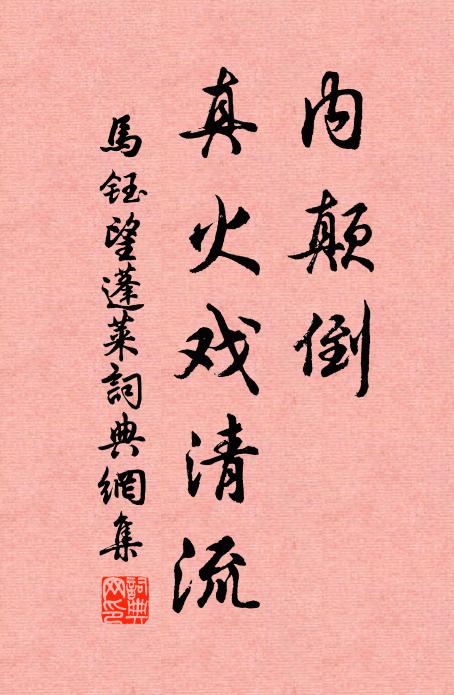 内颠倒
真火戏清流
馬鈺望蓬莱詞典網集
詞典网印